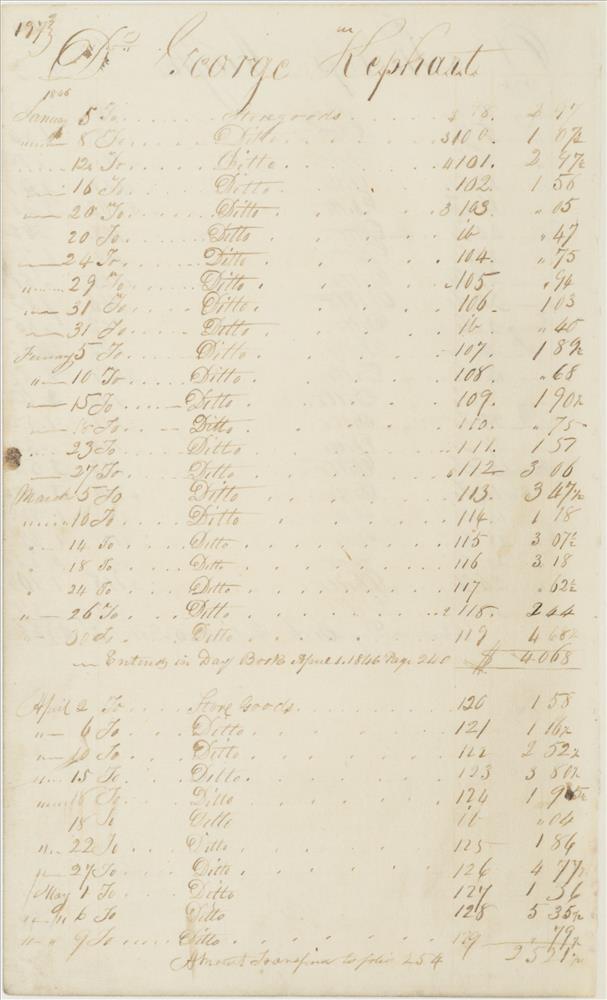 Dr George Kephart
1846
January 5 To Store goods 2 97
8 To Ditto 100 1 07½
12 To Ditto 101 2 97½
16 To Ditto 102 1 56
20 To Ditto 103 " 05
20 To Ditto ib " 47
24 To Ditto 104 " 75
29 To Ditto 105 " 94
31 To Ditto 106 1 03
31 To Ditto ib " 40
5 To Ditto 107 1 89½
" 10 To Ditto 108 " 68
15 To Ditto 109 1 90½
18 To Ditto 110 " 75
23 To Ditto 111 1 57
27 To Ditto 112 3 06
March 5 To Ditto 113 3 47½
10 To Ditto 114 1 18
" 14 To Ditto 115 3 07½
" 18 To Ditto 116 3 18
" 24 To Ditto 117 " 62½
" 26 To Ditto 118 2 44
30 To Ditto 119 4 68½
in Day Book April 1, 1846 Page 240 $ 40 68
April 2 To Store Goods 120 1 58
" 6 To Ditto 121 1 16½
" 10 To Ditto 122 2 52½
" 15 To Ditto 123 3 80½
18 To Ditto 124 1
18 To Ditto ib " 04
" 22 To Ditto 125 1 86
" 27 To Ditto 126 4 77½
May 1 To Ditto 127 1 36
" 6 To Ditto 128 5 35½
" 9 To Ditto 129 " 79½
Amount to folio 254 25 21½